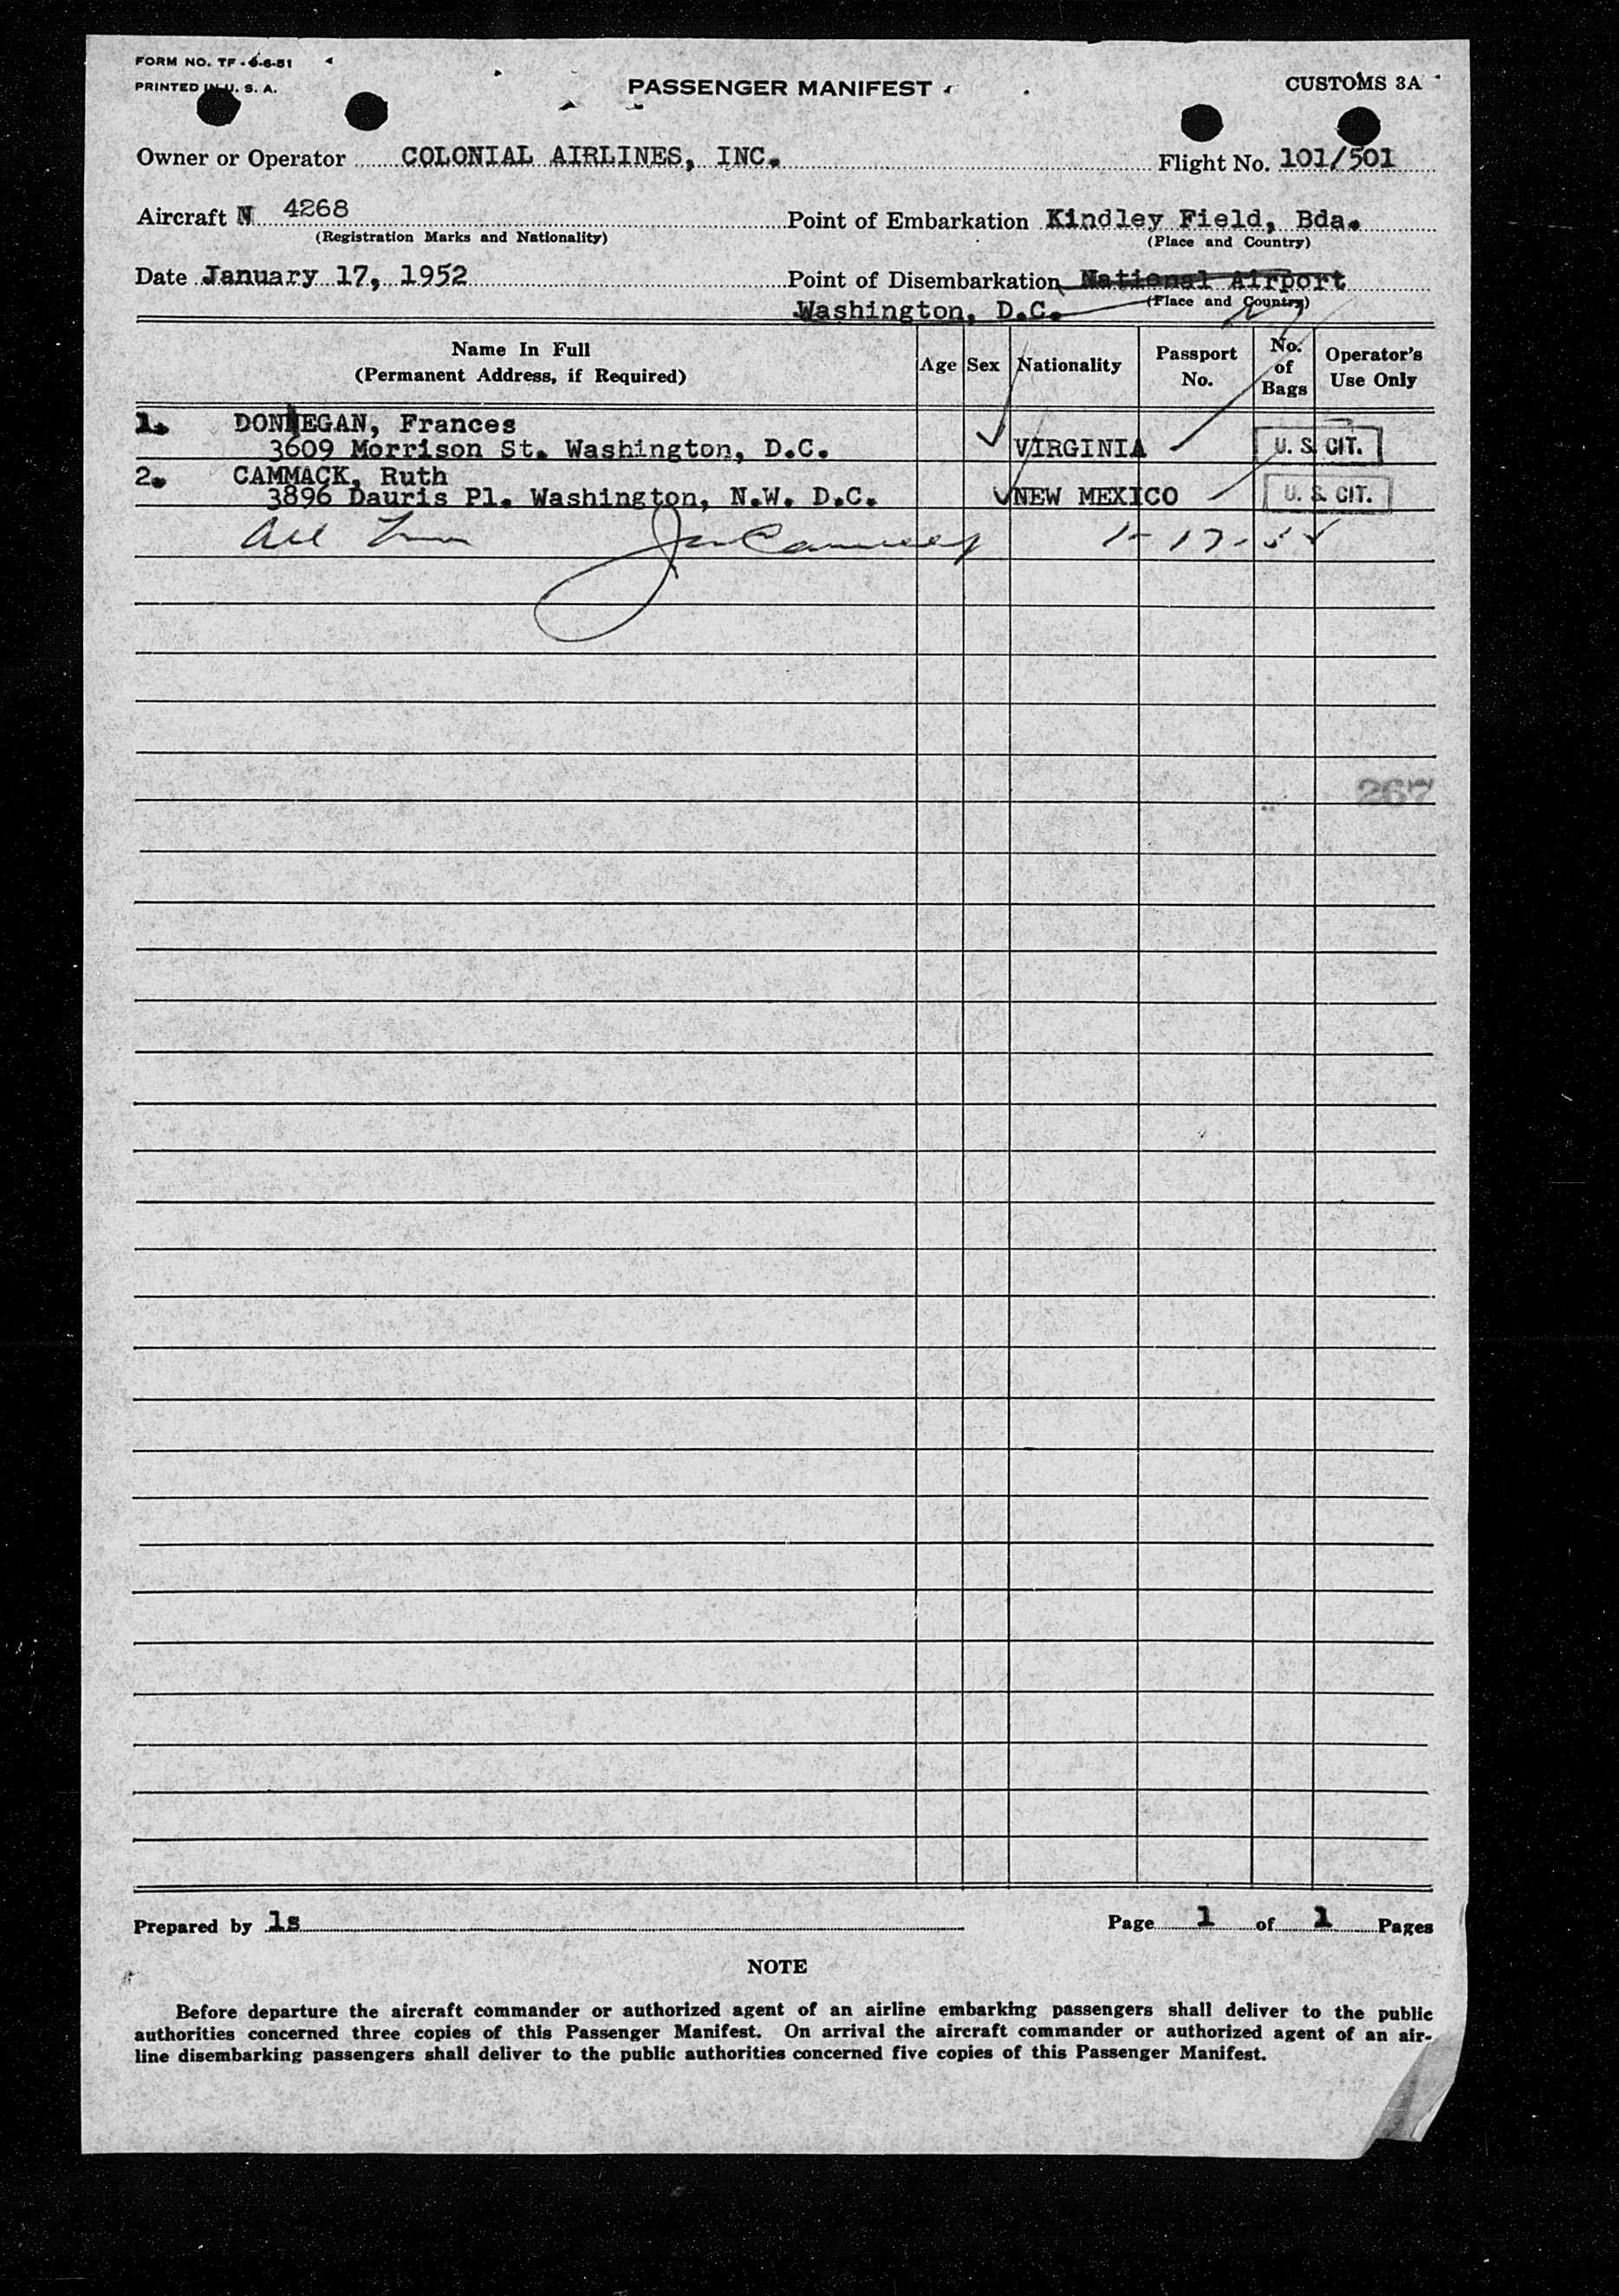 FORM NO. TF-6-6-51
PRINTED IN U. S. A.
PASSENGER MANIFEST
CUSTOMS 3A
Owner or Operator COLONIAL AIRLINES, INC.
Flight No. 101/501
Aircraft N 4268
(Registration Marks and Nationality)
Point of Embarkation Kindley Field, Bda.
(Place and Country)
Date January 17, 1952
Point of Disembarkation National Airport
(Place and Country)
Washington, D.C.
Name In Full
(Permanent Address, if Required)
Age
Sex
Nationality
Passport
No.
No.
of
Bags
Operator's
Use Only
1. DONNEGAN, Frances
3609 Morrison St. Washington, D.C. VIRGINIA U. S. CIT.
2. CAMMACK, Ruth
3896 Dauris Pl. Washington, N.W. D.C. NEW MEXICO U. S. CIT.
All 1-17-52
267
Prepared by ls
Page 1 of 1 Pages
NOTE
Before departure the aircraft commander or authorized agent of an airline embarking passengers shall deliver to the public
authorities concerned three copies of this Passenger Manifest. On arrival the aircraft commander or authorized agent of an air-
line disembarking passengers shall deliver to the public authorities concerned five copies of this Passenger Manifest.